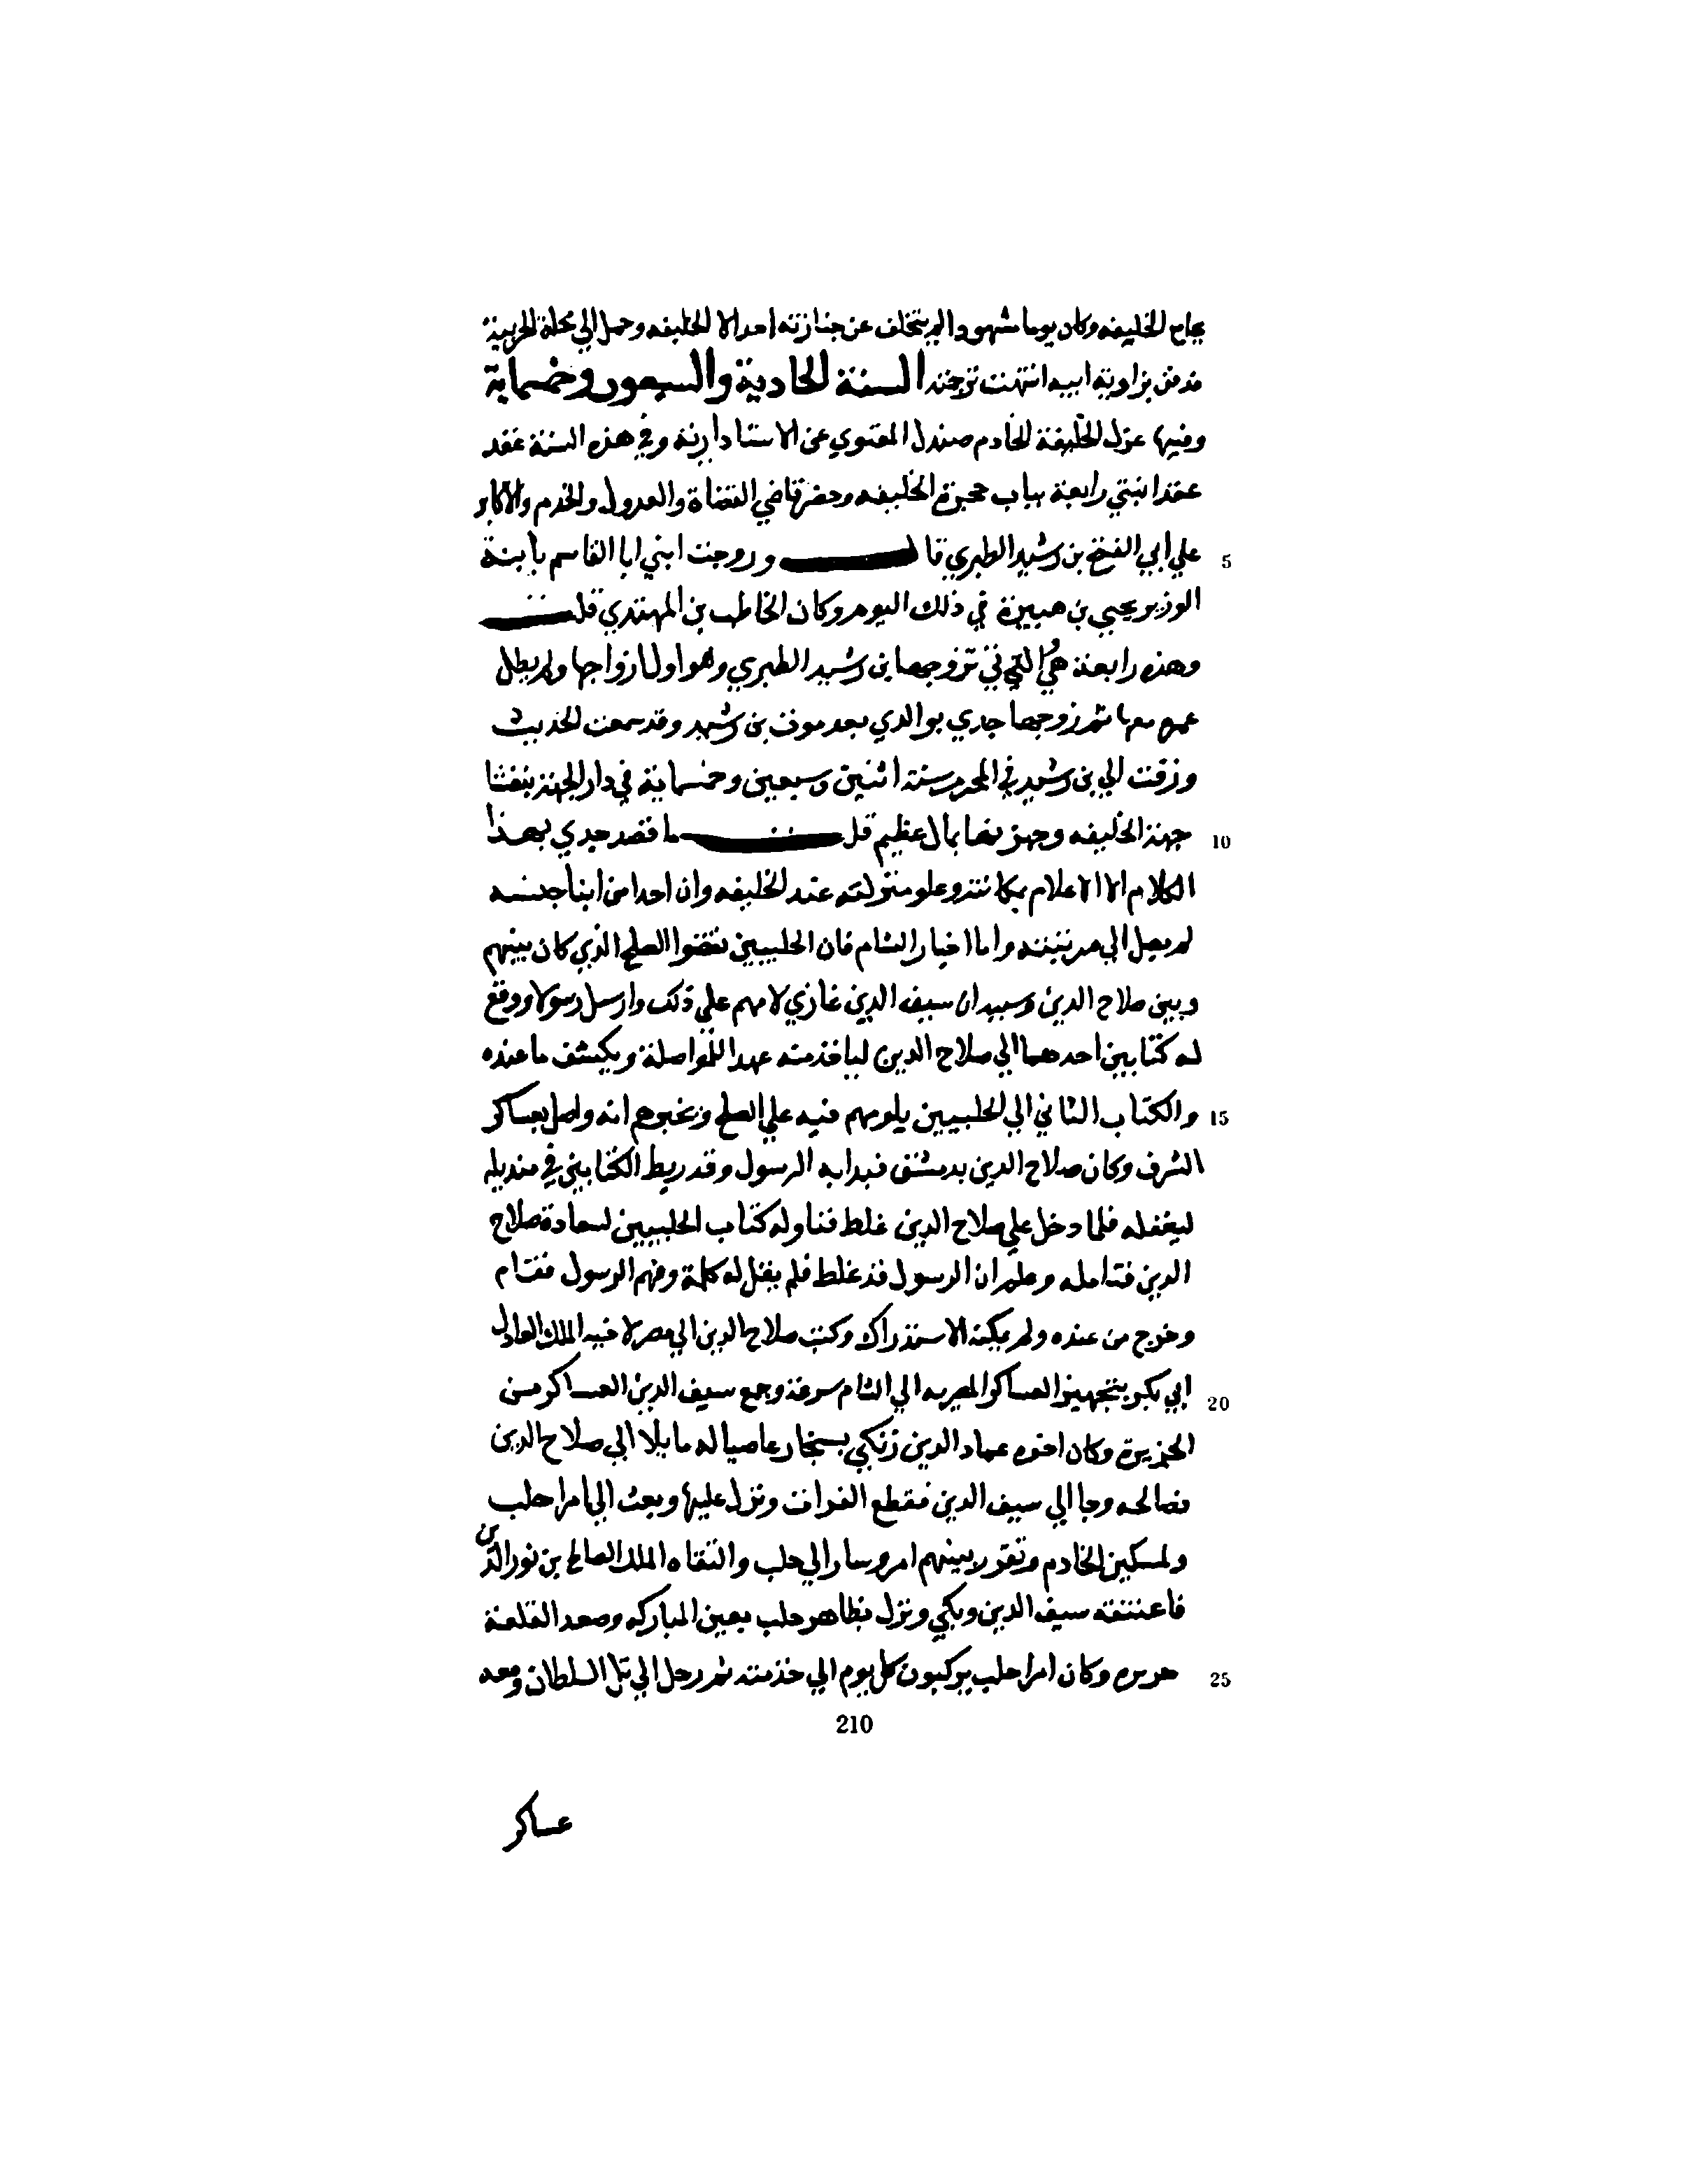 بجامع الخليفه وكان يوما مشهودا لم يتخلف عن جنازته احد الا الخليفه وحمل الي محلة الحربية
فدفن بزاوية ابيه انتهت ترجمته السنة الحادية والسبعون وخمسماية
وفيها عزل الخليفة الخادم صندل المقتوي عن الاستادارية وفي هذه السنة عقد
عقد ابنتي رابعة بباب حجرة الخليفه وحضر قاضي القضاة والعدول والخدم والاكابر
5 علي ابي الفتح بن رشيد الطبري قال وزوجت ابني ابا القاسم بابنة
الوزير يحيي بن هبيرة في ذلك اليوم وكان الخاطب بن المهتدي قلت
وهذه رابعة هي التي تزوجها بن رشيد الطبري وهو اول ازواجها ولم يطل
عمره معها ثم زوجها جدي بوالدي بعد موت بن رشيد وقد سمعت الحديث
وزفت الي بن رشيد في المحرم سنة اثنتين وسبعين وخمسماية في دار الجهة بنفشا
10 جهة الخليفه وجهزتها بمال عظيم قلت ما قصد جدي بهذا
الكلام الا الاعلام بمكانته وعلو منزلته عند الخليفه وان احدا من ابنا جنسه
لم يصل الي مرتبته واما اخبار الشام فان الحلبيين نقضوا الصلح الذي كان بينهم
وبين صلاح الدين وسببه ان سيف الدين غازي لامهم علي ذلك وارسل رسولا ووقع
له كتابين احدهما الي صلاح الدين لياخذ منه عهد المواصلة ويكشف ما عنده
15 والكتاب الثاني الي الحلبيين يلومهم فيه علي الصلح ويخبرهم انه واصل بعساكر
الشرق وكان صلاح الدين بدمشق فبدا به الرسول وقد ربط الكتابين في منديله
ليغفله فلما دخل علي صلاح الدين غلط فناوله كتاب الحلبيين لسعادة صلاح
الدين فتامله وعلم ان الرسول قد غلط فلم يقل له كلمة وفهم الرسول فقام
وخرج من عنده ولم يمكنه الاستدراك وكتب صلاح الدين الي مصر لاخيه الملك العادل
20 ابي بكر بتجهيز العساكر المصريه الي الشام سرعة وجمع سيف الدين العساكر من
الجزيرة وكان اخوه عماد الدين زنكي بسنجار عاصيا له مايلا الي صلاح الدين
فصالحه وجا الي سيف الدين فقطع الفرات ونزل عليها وبعث الي امرا حلب
ولمسكين الخادم وتقرر بينهم امر وسار الي حلب والتقاه الملك الصالح بن نور الدين
فاعتنقه سيف الدين وبكي ونزل بظاهر حلب بعين المباركه وصعد القلعة
25 وكان امرا حلب يركبون كل يوم الي خدمته ثم رحل الي تل السلطان ومعه
210
عساكر